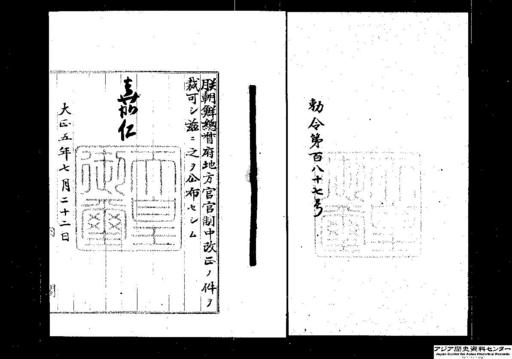 朕朝鮮總督府地方官官制中改正ノ件ヲ
裁可シ茲ニ之ヲ公布セシム
嘉仁
天皇
御璽
大正五年七月二十二日
内
閣
勅令第百八十七号
アジア歴史資料センター
Japan Center for Asian Historical Records